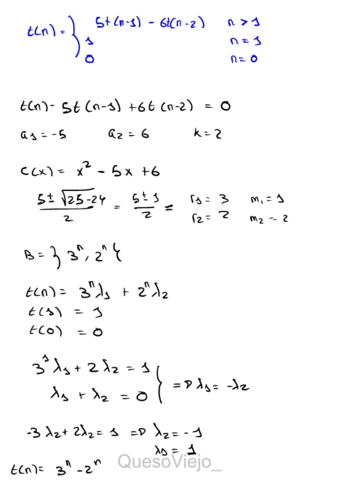 t(n) = { 5t(n-1) - 6t(n-2) n > 1
1 n = 1
0 n = 0
t(n) - 5t(n-1) + 6t(n-2) = 0
a1 = -5 a2 = 6 k = 2
C(x) = x² - 5x + 6
(5 ± √(25-24))/2 = (5 ± 1)/2 = r1 = 3 m1 = 1
r2 = 2 m2 = 2
B = } 3ⁿ, 2ⁿ {
t(n) = 3ⁿ λ1 + 2ⁿ λ2
t(1) = 1
t(0) = 0
3¹ λ1 + 2 λ2 = 1
λ1 + λ2 = 0 } => λ1 = -λ2
-3λ2 + 2λ2 = 1 => λ2 = -1
λ1 = 1
t(n) = 3ⁿ - 2ⁿ
QuesoViejo_